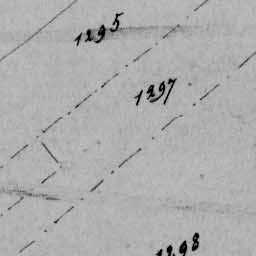 1295
1297
1298